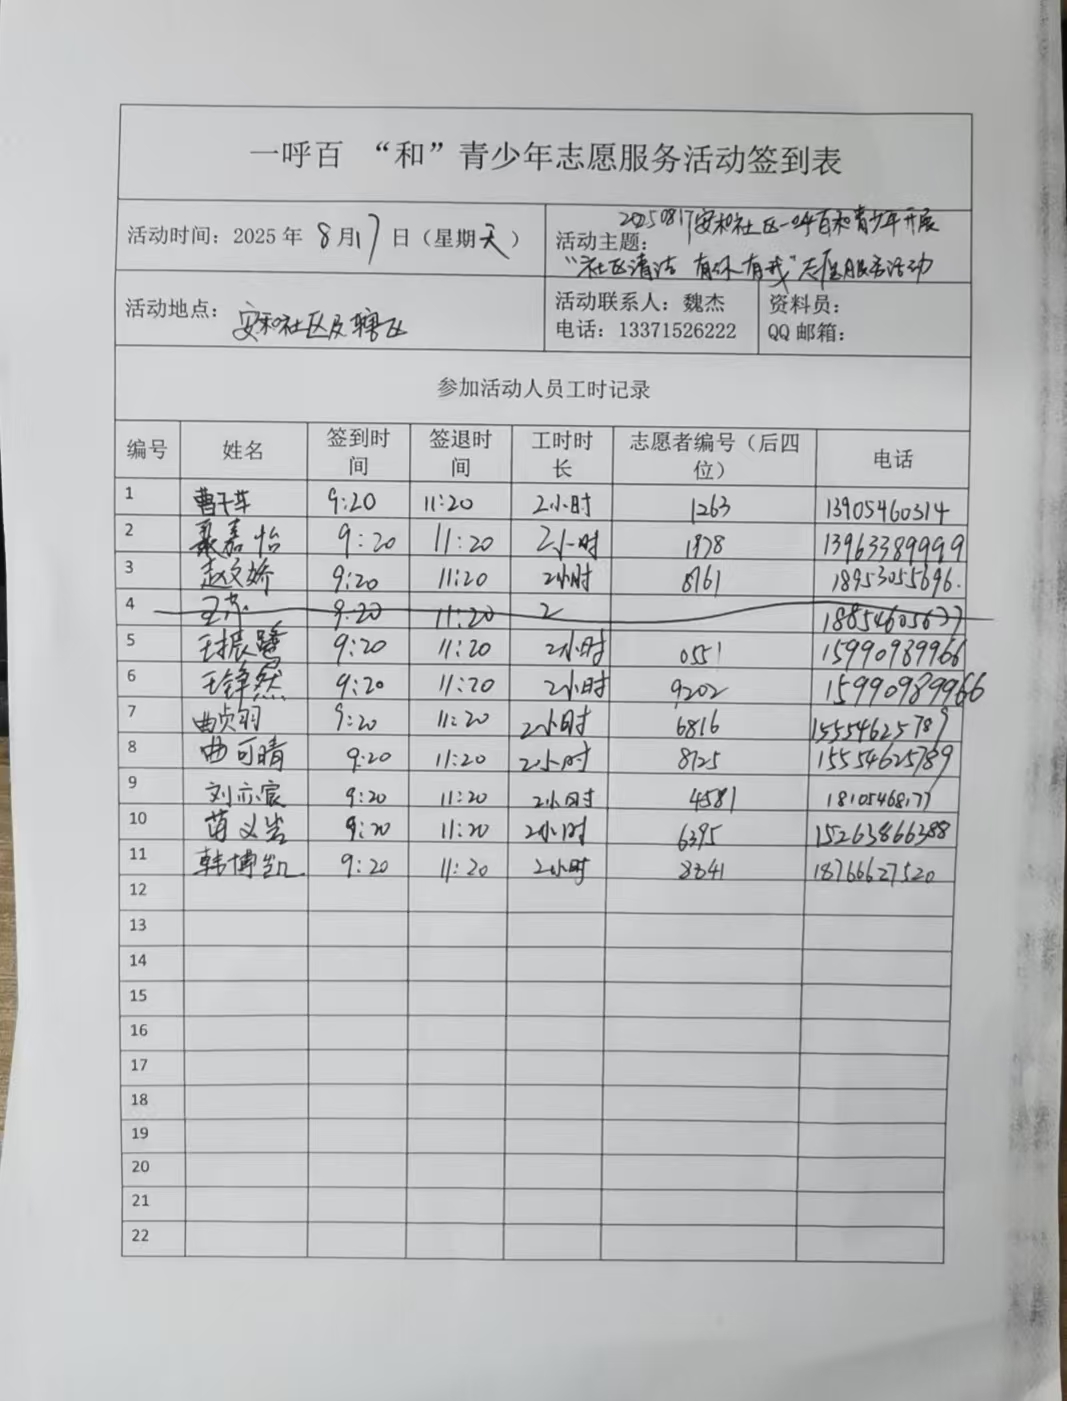 一呼百 “和”青少年志愿服务活动签到表
活动时间：2025 年 8月17日（星期天）
20250817安和社区一呼百和青少年开展
活动主题：
“社区清洁 有你有我”志愿服务活动
活动地点： 安和社区及辖区
活动联系人：魏杰
电话：13371526222
资料员：
QQ 邮箱：
参加活动人员工时记录
编号 姓名 签到时间 签退时间 工时时长 志愿者编号（后四位） 电话
1 曹 9:20 11:20 2小时 1263 13905460314
2 聂嘉怡 9:20 11:20 2小时 1978 13963389999
3 赵文娇 9:20 11:20 2小时 8761 18953055696.
4 9:20 11:20 2
5 王振鹭 9:20 11:20 2小时 0551 15990989966
6 王铮然 9:20 11:20 2小时 9202 15990989966
7 曲贞羽 9:20 11:20 2小时 6816 15554625789
8 曲可晴 9:20 11:20 2小时 8725 15554625789
9 刘亦宸 9:20 11:20 2小时 4581
10 苗义岩 9:20 11:20 2小时 6395 15263866388
11 韩博凯 9:20 11:20 2小时 8341 18766627520
12
13
14
15
16
17
18
19
20
21
22